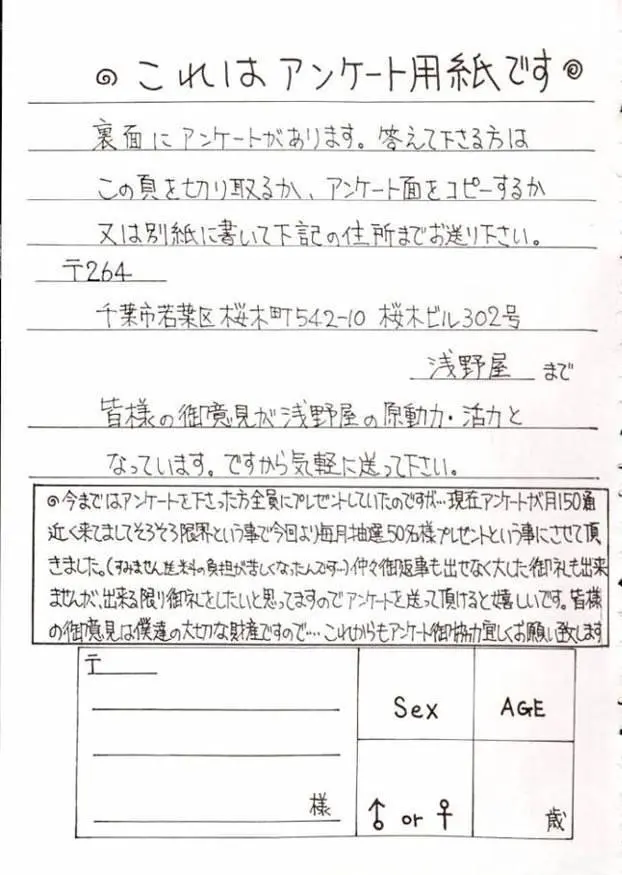 これはアンケート用紙です
裏面にアンケートがあります。答えて下さる方は
この頁を切り取るか、アンケート面をコピーするか
又は別紙に書いて下記の住所までお送り下さい。
〒264
千葉市若葉区桜木町542-10 桜木ビル302号
浅野屋 まで
皆様の御意見が浅野屋の原動力・活力と
なっています。ですから気軽に送って下さい。
◎今まではアンケートを下さった方全員にプレゼントしていたのですが…現在アンケートが月150通
近く来てましてそろそろ限界という事で今回より毎月抽選50名様プレゼントという事にさせて頂
きました。(すみません送料の負担が苦しくなったんです…)仲々御返事も出せなく大した御礼も出来
ませんが、出来る限り御礼をしたいと思ってますのでアンケートを送って頂けると嬉しいです。皆様
の御意見は僕達の大切な財産ですので…これからもアンケート御協力宜しくお願い致します
〒
Sex AGE
様 ♂ or ♀ 歳